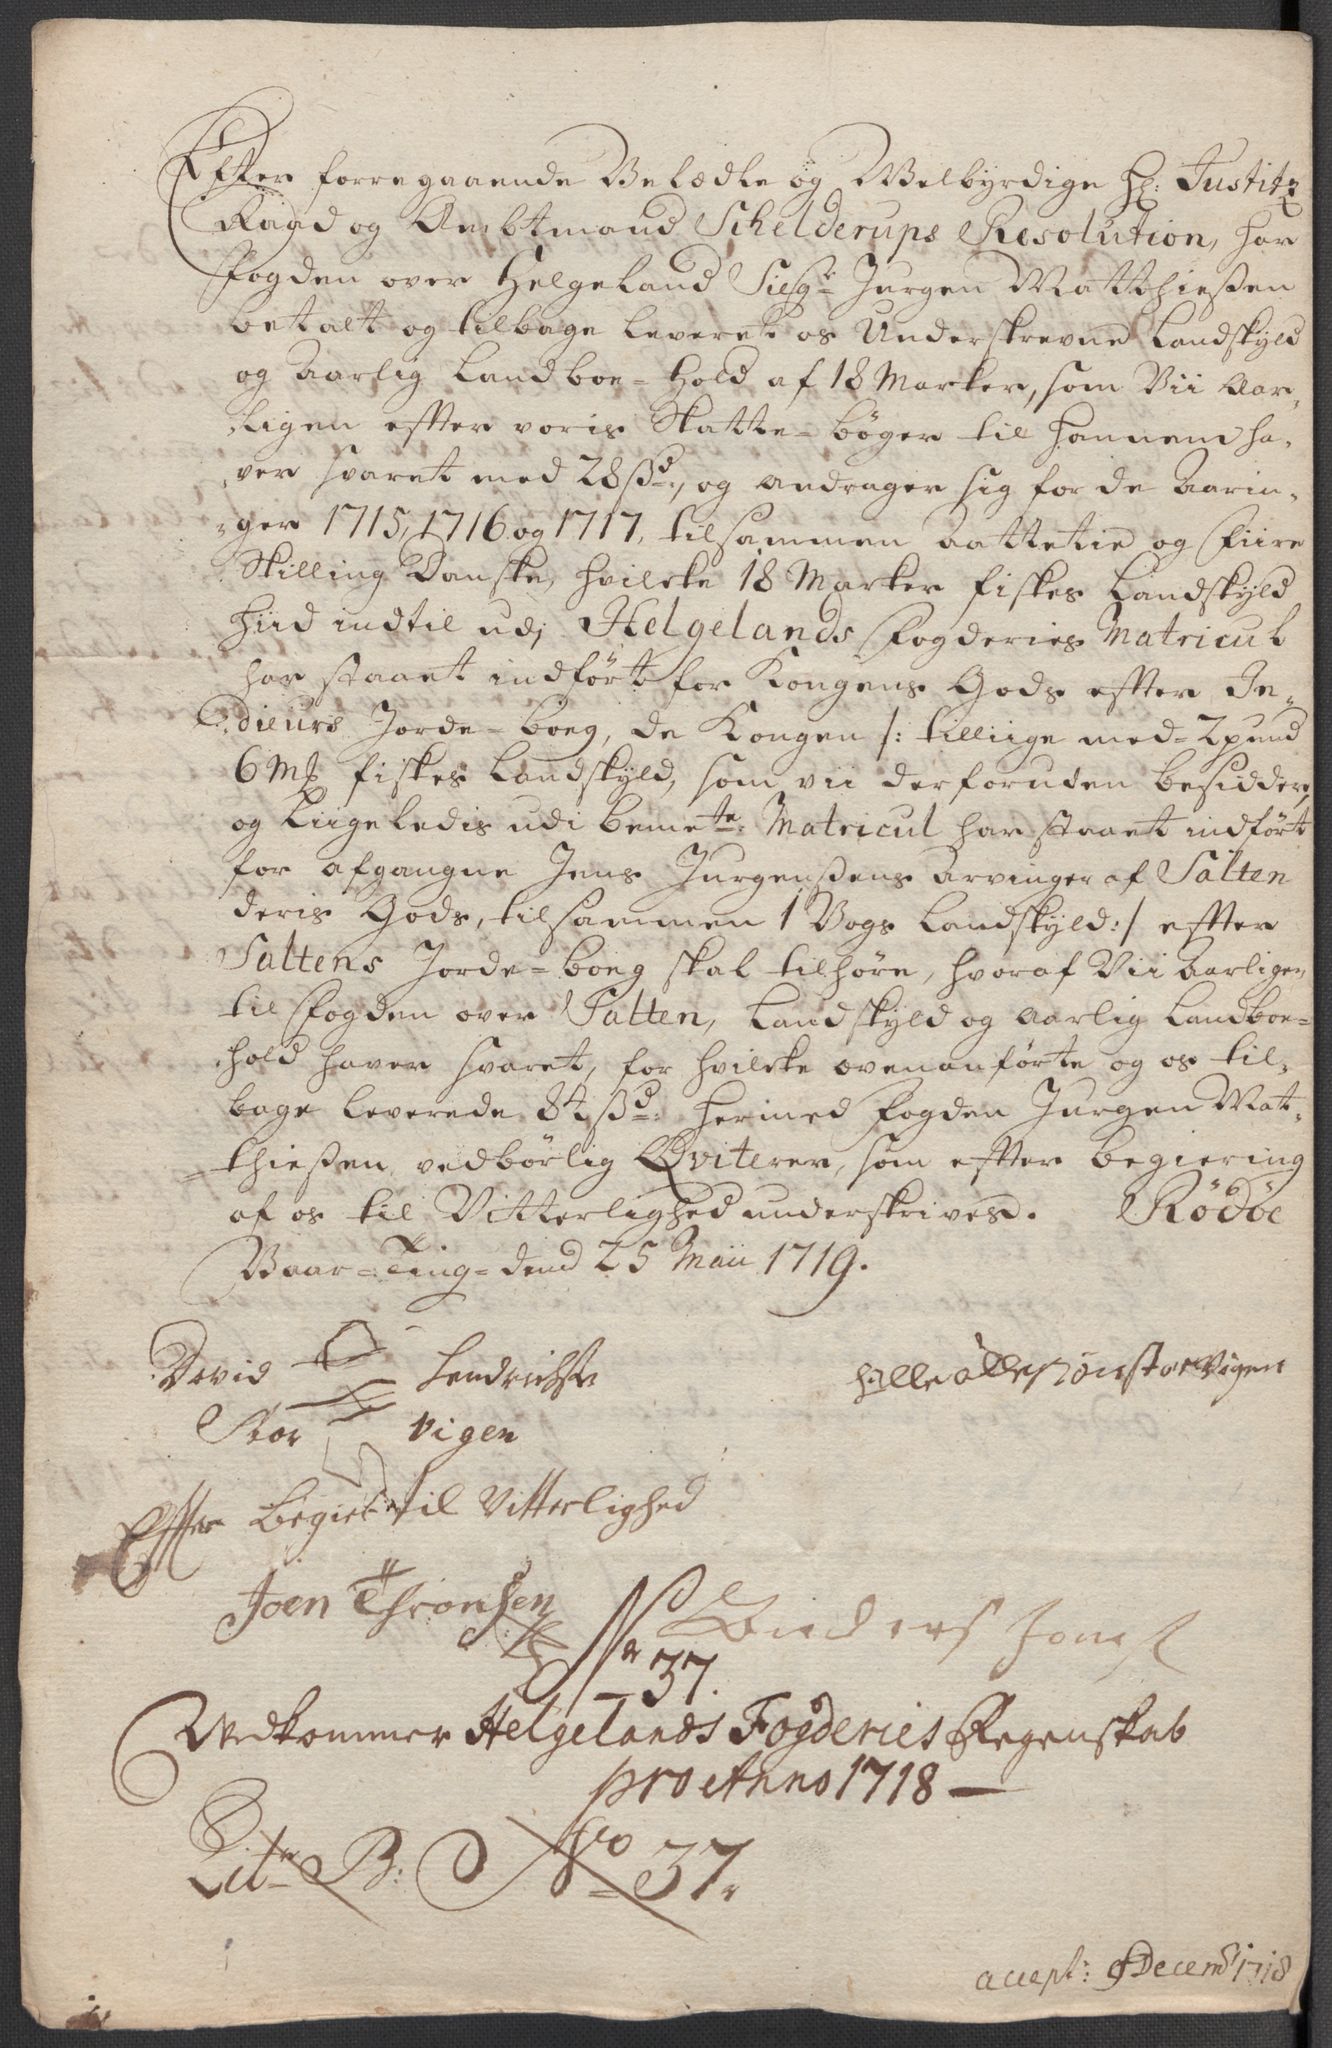 Efter forregaaende Velædle og Welbyrdige Hr: Justitz
Raad og Ambtmand Schelderups Resolution, har
fogden over Helgeland Sieur Jurgen Matthiesen
betalt og tilbage leveret os Underskrevne Landskyld
og Aarlig Landboe-Hold af 18 Marker, som Vii Aar-
ligen effter voris Skatte-bøger til hannem ha-
ver svaret med 28 ßd:, og andrager sig for de Aarin-
ger 1715, 1716 og 1717, tilsammen aattetie og fiire
Skilling Danske, hvilcke 18 Marker fiskes Landskyld
hiid indtil udj Helgelands Fogderies Matricul
har staaet indført for Kongens Gods effter In-
dieurs Jorde-boeg, de Kongen /: tilliige med 2 pund
6 Mk fiskes Landskyld, som vii derforuden besidder,
og Liigeledis udi bemete: Matricul har staaet indført
for afgangne Jens Jurgensens Arvinger af Salten
deris Gods, tilsammen 1 Vogs Landskyld :/ effter
Saltens Jorde-boeg skal tilhøre, hvoraf Vii Aarligen
til Fogden over Salten, Landskyld og Aarlig Landboe-
hold haver svaret, for hvilcke ovenanførte og os til-
bage leverede 84 ßd: hermed fogden Jurgen Mat-
thiesen vedbørlig Qviterer, som effter begiering
af os til Vitterlighed underskrives. Rödöe
Vaar-Ting dend 25 Maii 1719.
David Hendrichsen
Stor vigen
Halle storvigen
Effter begier til Vitterlighed
Joen Thronsen
Anders Jons
Nr 37.
Vedkommer Helgelands Fogderies Regenskab
pro Anno 1718
Litr B: No 37.
accept: Decemb 1718